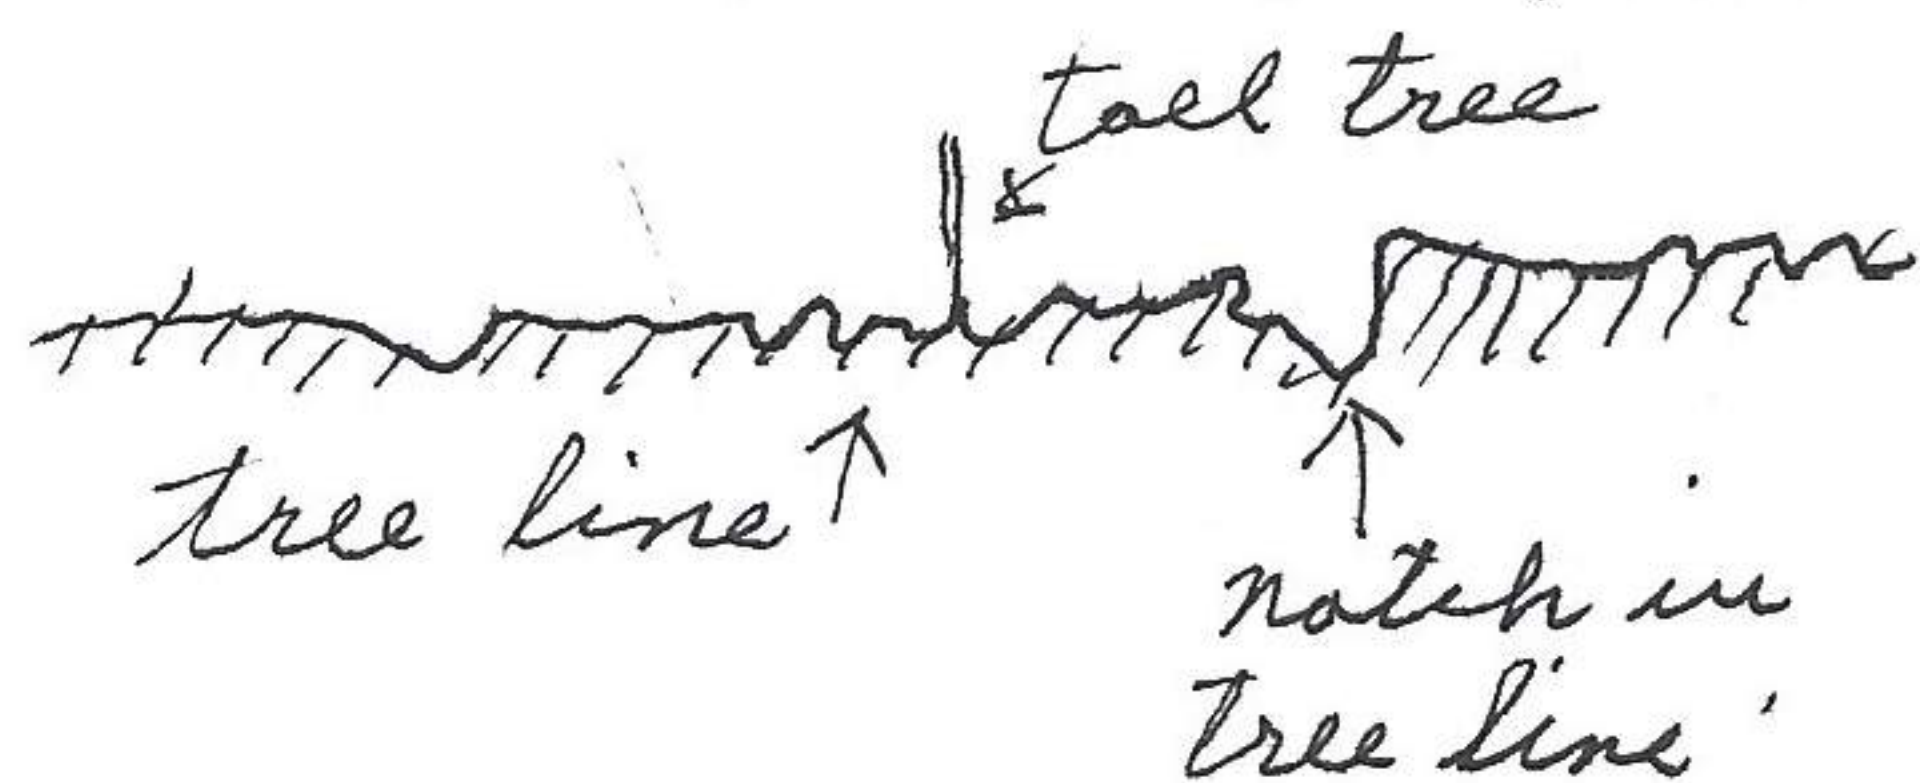 tall tree
tree line
notch in
tree line